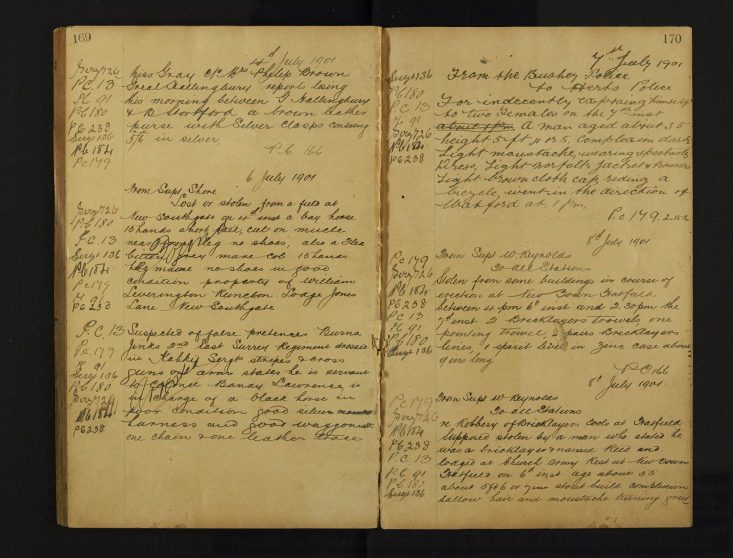 169
4th July 1901
Serg 726
P.C. 13
91
PC 180
PC 238
Sergt 136
PC 184
PC 179
Miss Gray c/o Mrs Philip Brown
Great Hallingbury report losing
this morning between G Hallingbury
& B Stortford a brown leather
purse with Silver clasps containing
5/6 in silver,
P.C. 166
6 July 1901
Serg 726
PC 180
P.C. 13
Sergt 136
PC 184
PC 179
91
PC 238
From Supt Shore
Lost or stolen from a field at
New Southgate on 4th inst a bay horse
15 hands short tail, cut on muscle
near front leg no shoes, also a Flea
bitten grey mare cob 15 hands
mane no shoes in good
condition property of William
Lodge Jones
Lane New Southgate
P.C. 13
PC 179
91
Sergt 136
PC 180
Serg 726
PC 184
PC 238
Suspected of false pretence
Jinks 2nd East Surrey Regiment dressed
in Sergts stripes & cross
guns on arms states he is servant
to Lawrence, is
in charge of a black horse in
poor condition good silver mounted
harness and good waggonette
one chain & one leather trace
170
7th July 1901
Sergt 136
PC 180
P.C. 13
91
Serg 726
PC 184
PC 238
From the Bushey Police
to Herts Police
For indecently exposing himself
to two Females on the 7th inst
A man aged about 35
height 5 ft 4 or 5. Complexion dark
Light moustache, wearing spectacles
Dress, Light norfolk jacket &
Light brown cloth cap, riding a
bicycle, went in the direction of
Watford at 1 pm,
PC 179.
8th July 1901
PC 179
Serg 726
PC 184
PC 238
PC 13
91
PC 180
Sergt 136
From Supt W Reynolds
To all Stations
Stolen from some buildings in course of
erection at New Town Hatfield
between 4 pm 6th inst and 2.30 pm the
7th inst 2 Bricklayers trowels one
pointing trowel 2 pairs Bricklayers
lines, 1 spirit level in zinc case about
9 ins long
P.C. 166
8th July 1901.
PC 179
Serg 726
PC 184
PC 238
PC 13
PC 91
PC 180
Sergt 136
From Supt W Reynolds
To all Stations
re Robbery of Bricklayers tools at Hatfield
Supposed stolen by a man who stated he
was a bricklayer & named Reed and
lodged at Church Army Rest at New Town
Hatfield on 6th inst age about 55
about 5ft 6 or 7 ins stout build complexion
sallow hair and moustache turning grey